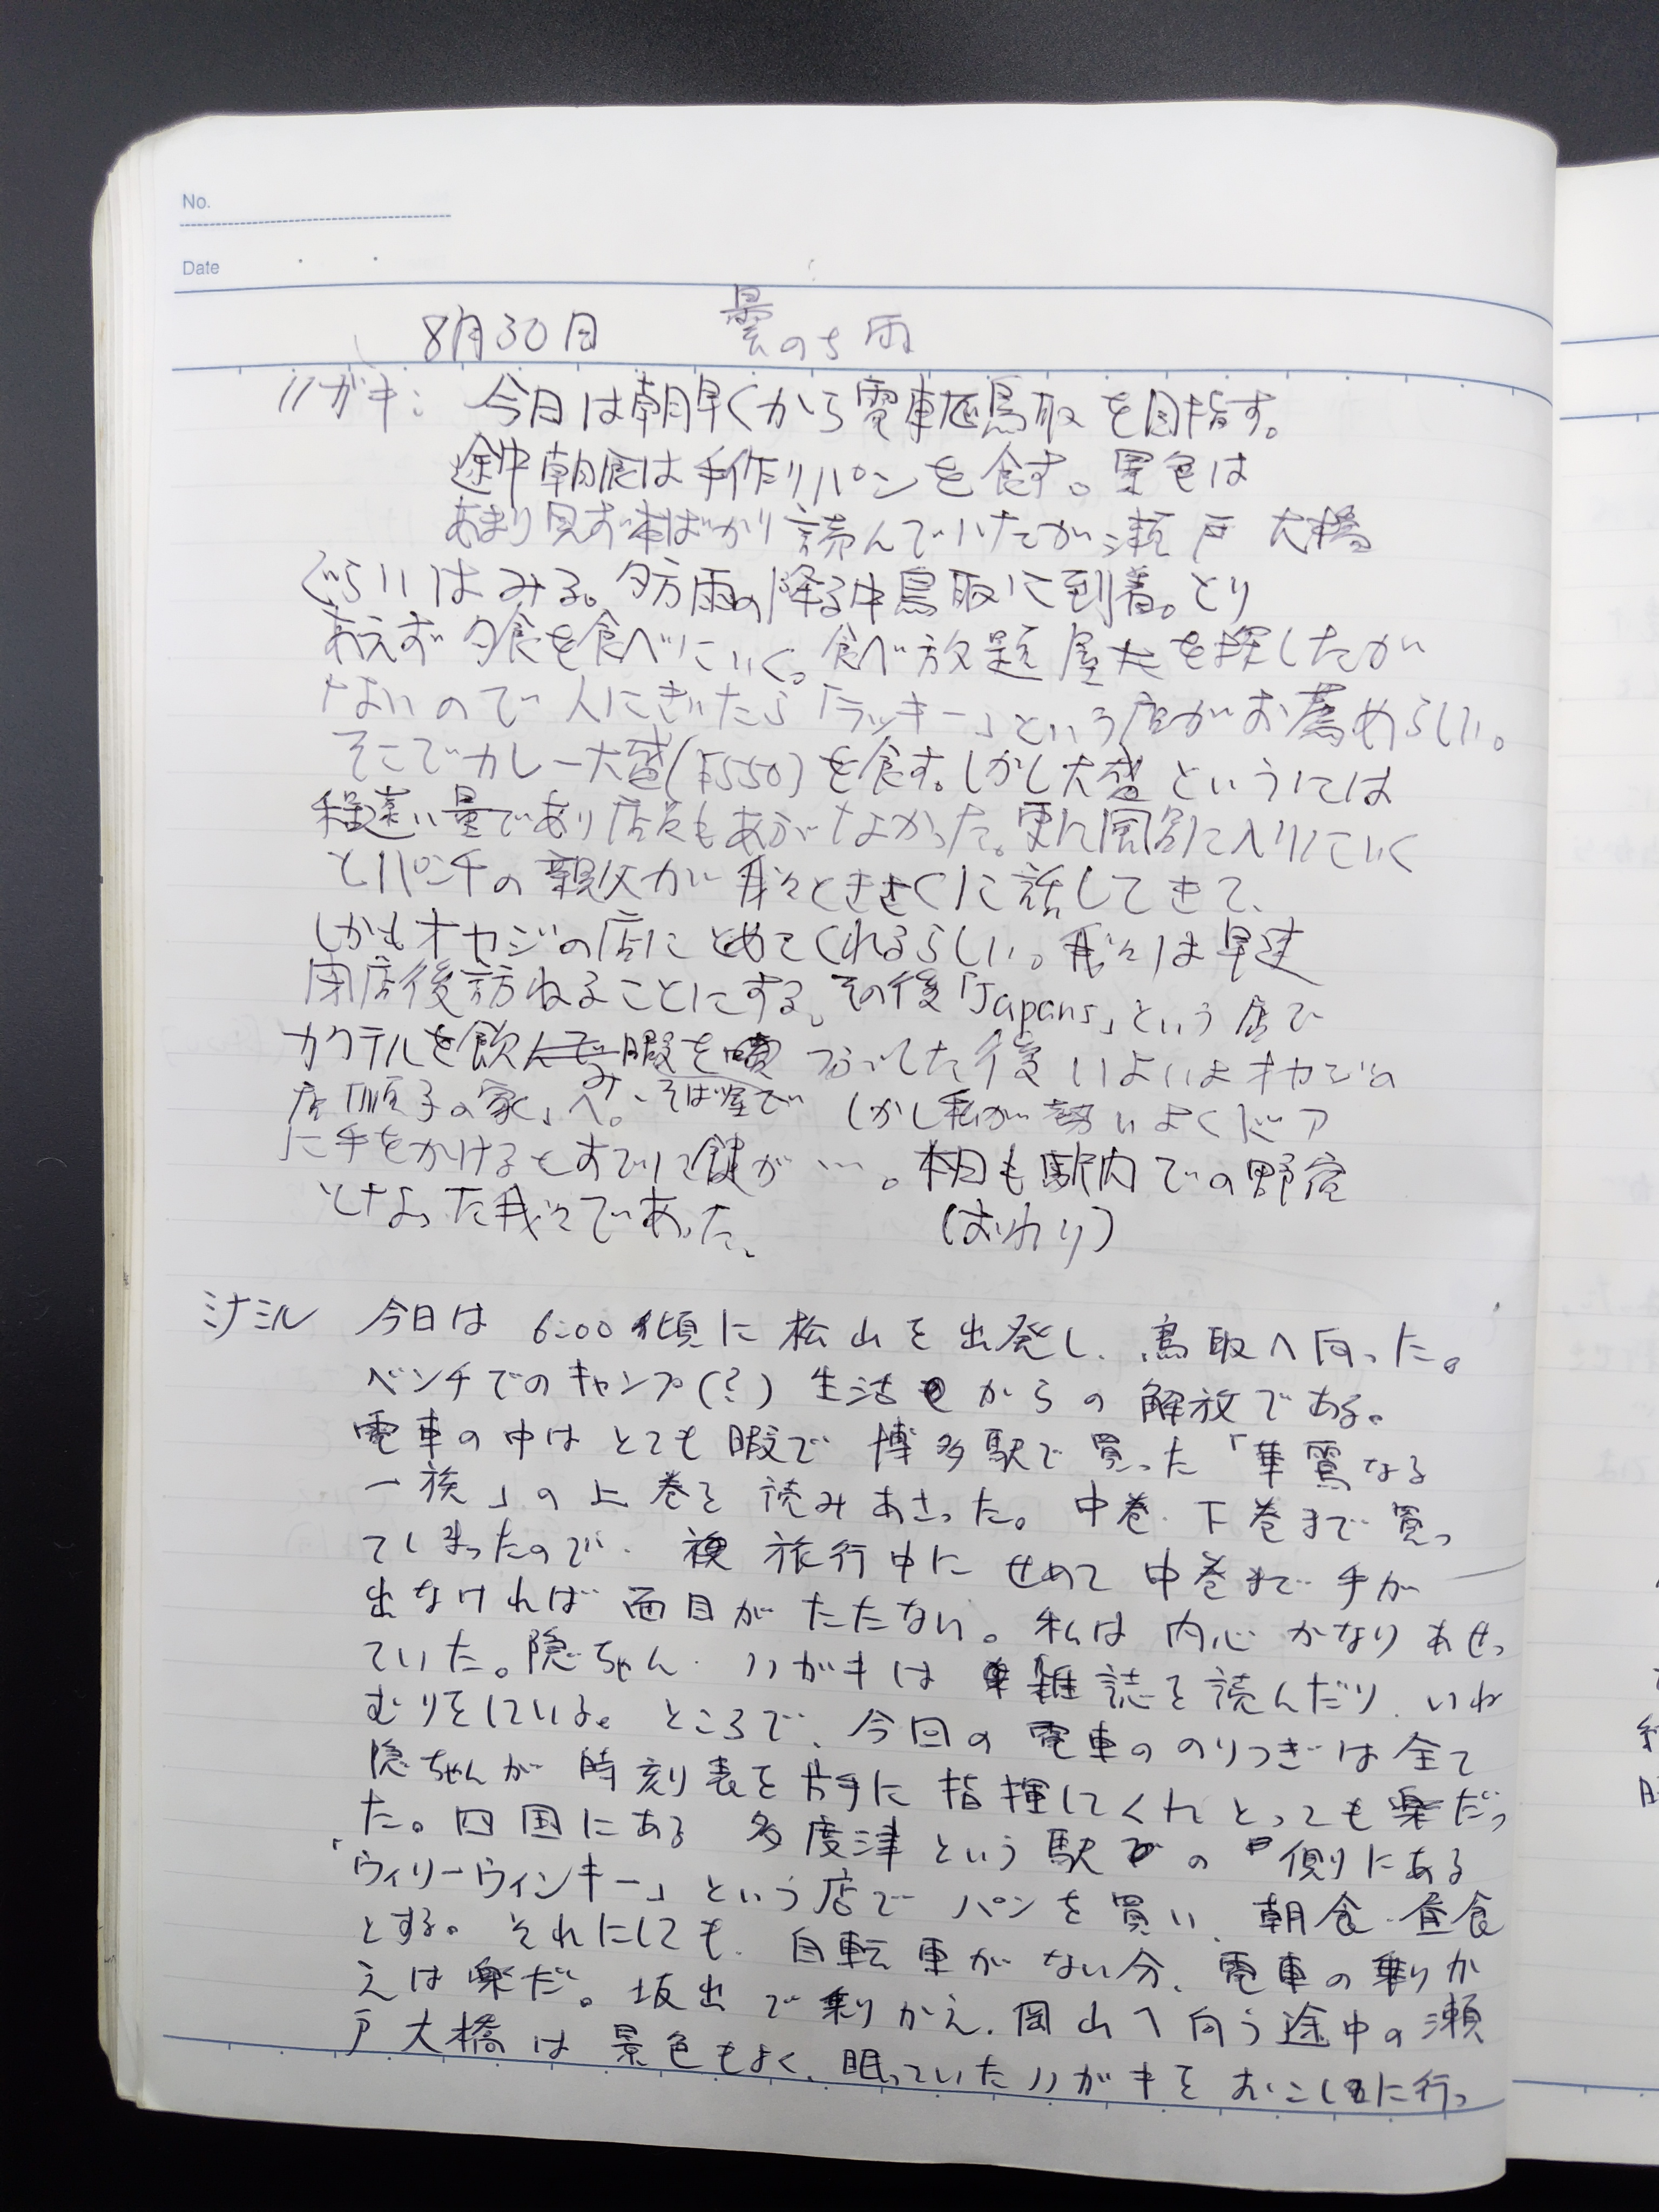 No.
Date
8月30日 曇のち雨
ハガキ: 今日は朝早くから電車で鳥取を目指す。
途中朝食は手作りパンを食す。景色は
あまり見ず本ばかり読んでいたが瀬戸大橋
ぐらいはみる。夕方雨の降る中鳥取に到着。とり
あえず夕食を食べにいく。食べ放題屋を探したが
ないので人にきいたら「ラッキー」という店がお薦めらしい。
そこでカレー大盛(¥550)を食す。しかし大盛というには
程遠い量であり店員もあぶなかった。更に風呂に入りにいく
とパンチの親父が我々ときさくに話してきて、
しかもオヤジの店にとめてくれるらしい。我々は早速
閉店後訪ねることにする。その後「Japans」という店で
カクテルを飲み、そば屋で つぶした後いよいよオヤジの
店「順子の家」へ。 しかし私が勢いよくドア
に手をかけるとすでに鍵が…。本日も駅内での野宿
となった我々であった。 (おわり)
ミナミル 今日は 6:00頃に松山を出発し、鳥取へ向った。
ベンチでのキャンプ(?)生活からの解放である。
電車の中はとても暇で博多駅で買った「華麗なる
一族」の上巻を読みあさった。中巻、下巻まで買っ
てしまったので、旅行中にせめて中巻まで手が
出なければ面目がたたない。私は内心かなりあせっ
ていた。隠ちゃん、ハガキは雑誌を読んだり、いね
むりをしている。ところで、今回の電車ののりつぎは全て
隠ちゃんが時刻表を片手に指揮してくれとっても楽だっ
た。四国にある多度津という駅の側にある
「ウィリーウィンキー」という店でパンを買い、朝食・昼食
とする。それにしても、自転車がない分、電車の乗りか
えは楽だ。坂出で乗りかえ、岡山へ向う途中の瀬
戸大橋は景色もよく、眠っていたハガキをおこしに行っ